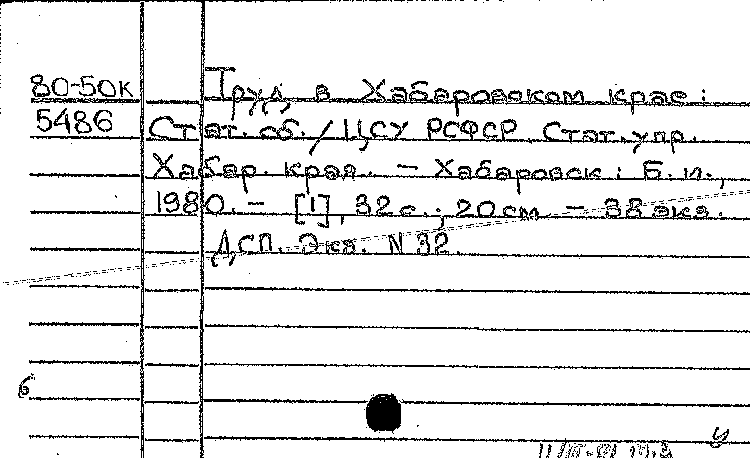 80-50к Труд в Хабаровском крае:
5486 Стат. сб. / ЦСУ РСФСР Стат. упр.
Хабар. края. — Хабаровск: Б. и.,
1980. — [1], 32 с.; 20 см — 38 экз.
ДСП. Экз. N 32.
б
у